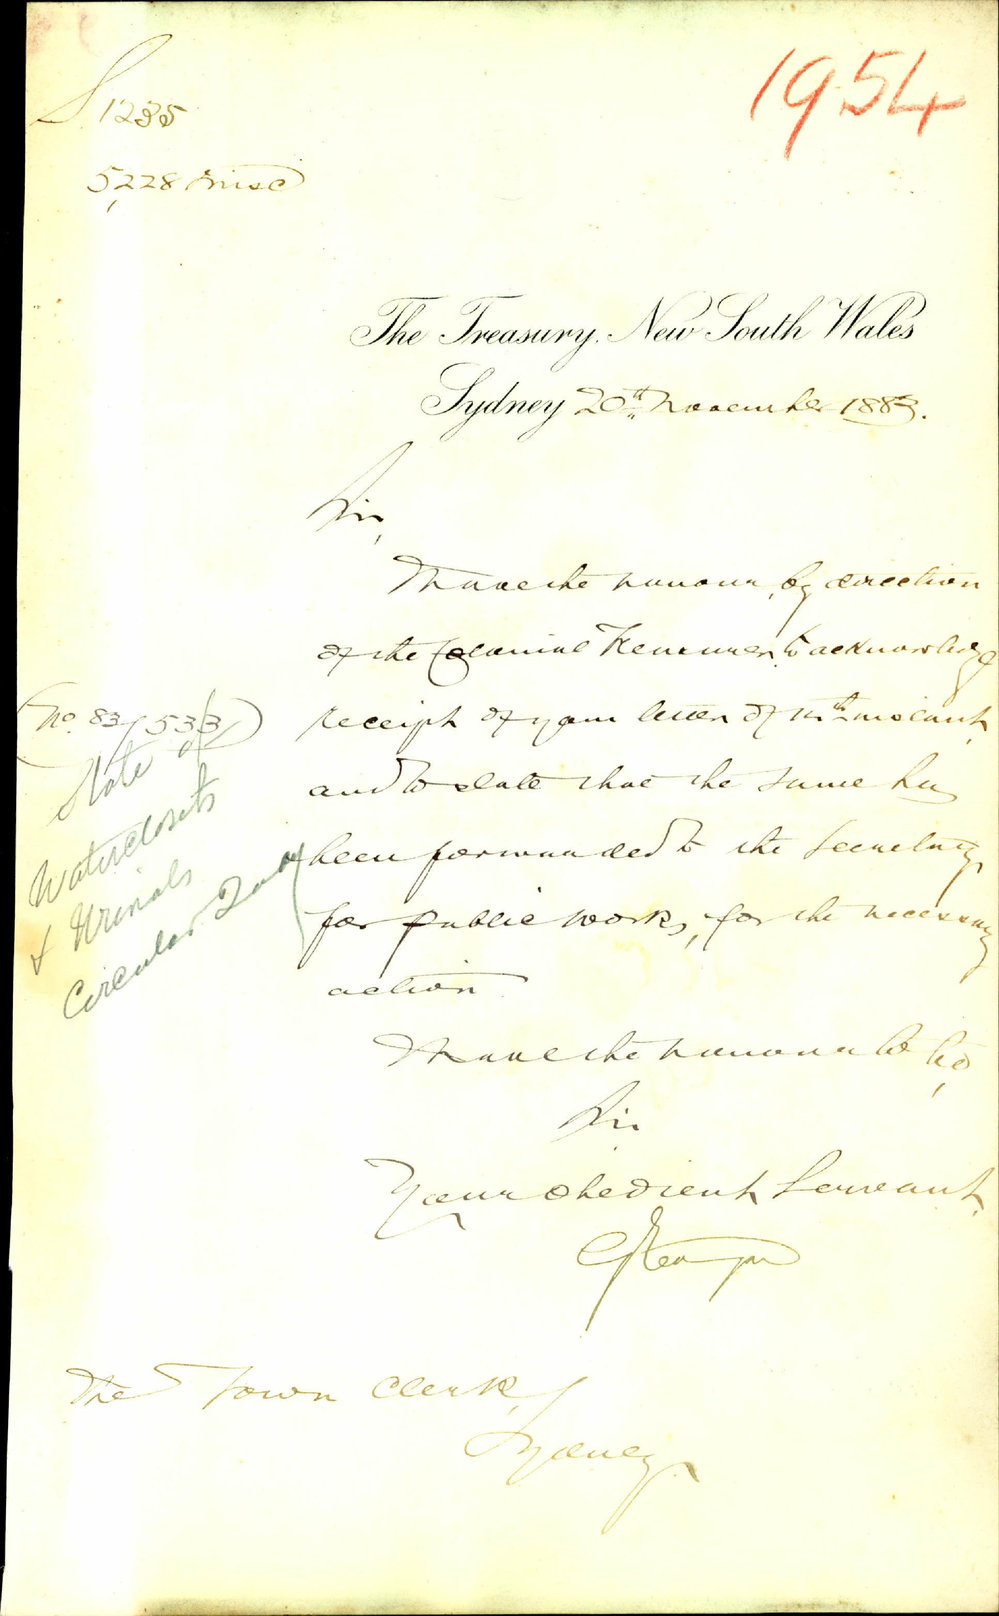 1954
S. 1235
5,228 Misc
The Treasury, New South Wales
Sydney 20th November 1883.
Sir,
I have the honour, by direction
of the Colonial Treasurer, to acknowledge
receipt of your letter of 15th instant,
(No. 83/533)
and to state that the same has
been forwarded to the Secretary
for public works, for the necessary
action.
State of
Waterclosets
& Urinals
Circular Quay
I have the honour to be,
Sir
Your obedient Servant,
The Town Clerk,
Sydney.